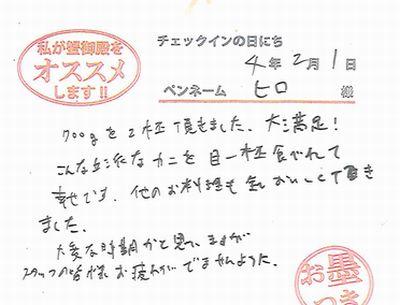 私が蟹御殿を
オススメ
します!!
チェックインの日にち
4年2月1日
ペンネーム ヒロ 様
700gを2杯頂きました。大満足!
こんな立派なカニを目一杯食べれて
幸せです。他のお料理も全ておいしく頂き
ました。
大変な時期かと思いますが
スタッフの皆様お疲れがでませんように。
お墨
つき